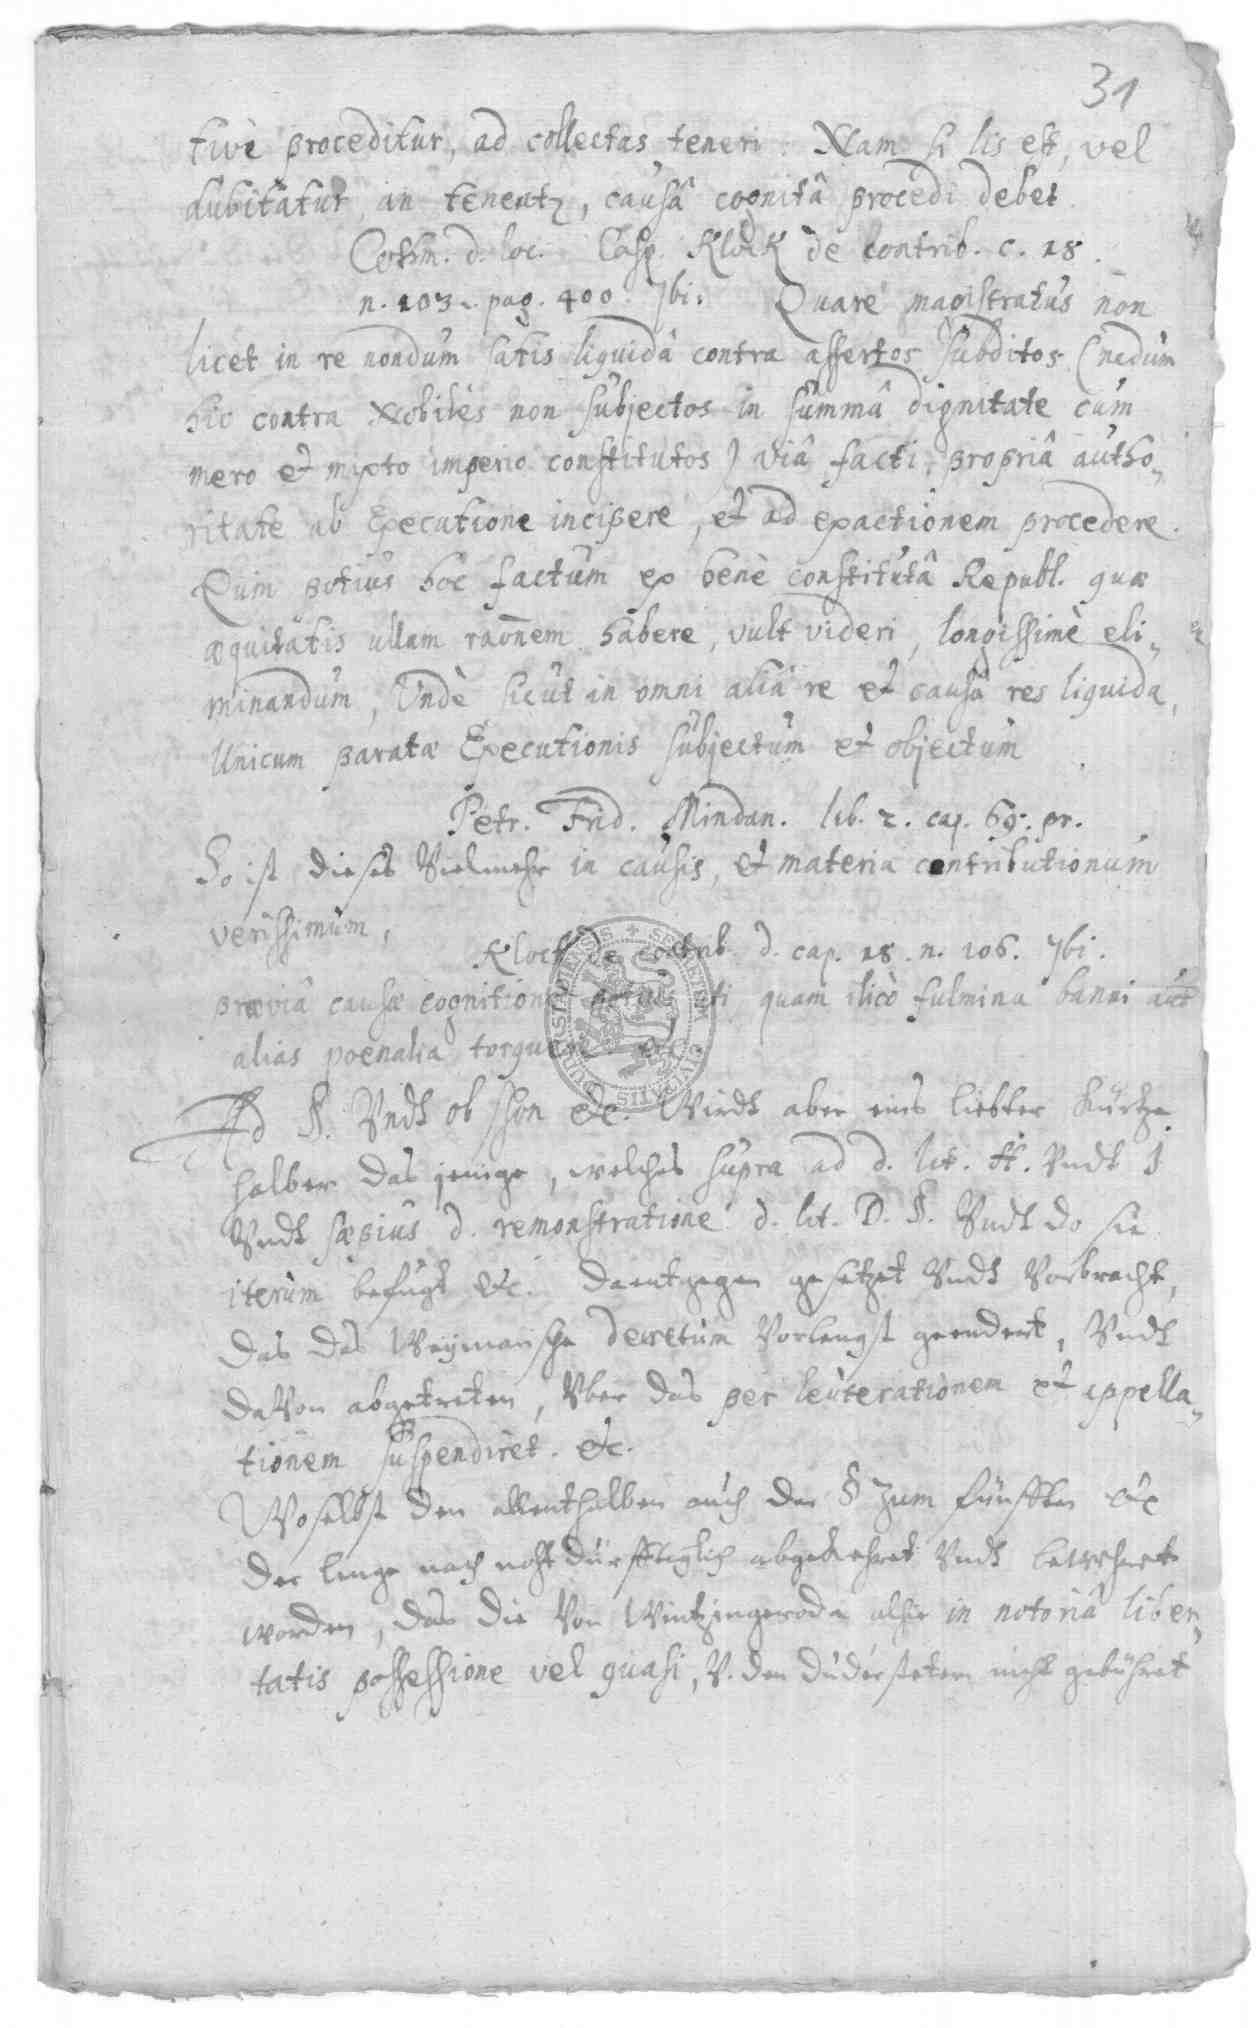 31
tivè proceditur, ad collectas teneri. Nam si lis est, vel
dubitatur, an teneatz, causâ cognitâ procedi debet.
Cothm. d. loc. Casp. Klock de contrib. c. 18.
n. 103. pag. 400. Jbi. Quare magistratus non
licet in re nondum satis liquidâ contra assertos subditos (nedum
hic contra Nobiles non subjectos in summâ dignitate cum
mero et mixto imperio constitutos) viâ facti, propriâ autho-
ritate ab Executione incipere, et ad exactionem procedere.
Quin potius hoc factum ex benè constitutâ Republ. quæ
æquitatis ullam raõnem habere, vult videri, longissimè eli-
minandum, Undè sicut in omni aliâ re et causâ res liquida,
Unicum paratæ Executionis subjectum et objectum
Petr. Frid. Mindan. lib. 2. cap. 69. pr.
So ist dieses Vielmehr in causis, et materia contributionum
verissimum,
Klock de contrib. d. cap. 18. n. 106. Jbi.
præviâ causæ cognitione quam ilicò fulmina banni aut
alias poenalia torquere. &c.
Ad §. Vndt ob schon &c. Wirdt aber eins liebter Kürtze
halber das jenige, welches supra ad d. lit. H. Vndt J
Vndt sæpius d. remonstratione d. lit. D. §. Vndt do sie
iterum befugt &c. daentgegen gesetzet Vndt Vorbracht,
das das Weymarische decretum Vorlengst geendert, Vndt
daVon abgetretten, Vber das per leuterationem et appella-
tionem suspendiret. &c.
Woselbst den allenthalben auch der § Zum fünfften &c
der lenge nach nohtdürfftiglich abgelehnet Vndt bewehret
worden, das die Von Wintzingeroda alhie in notoriâ liber-
tatis possessione vel quasi, V. den Duderstetern nicht gebühret